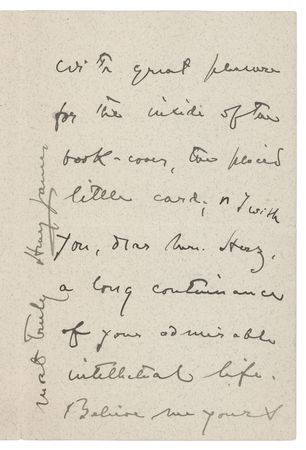 with great pleasure
for the inside of the
book-cover, the
little card; & I wish
you, dear Mrs. Herz,
a long continuance
of your admirable
intellectual life.
Believe me yours
most truly Henry James